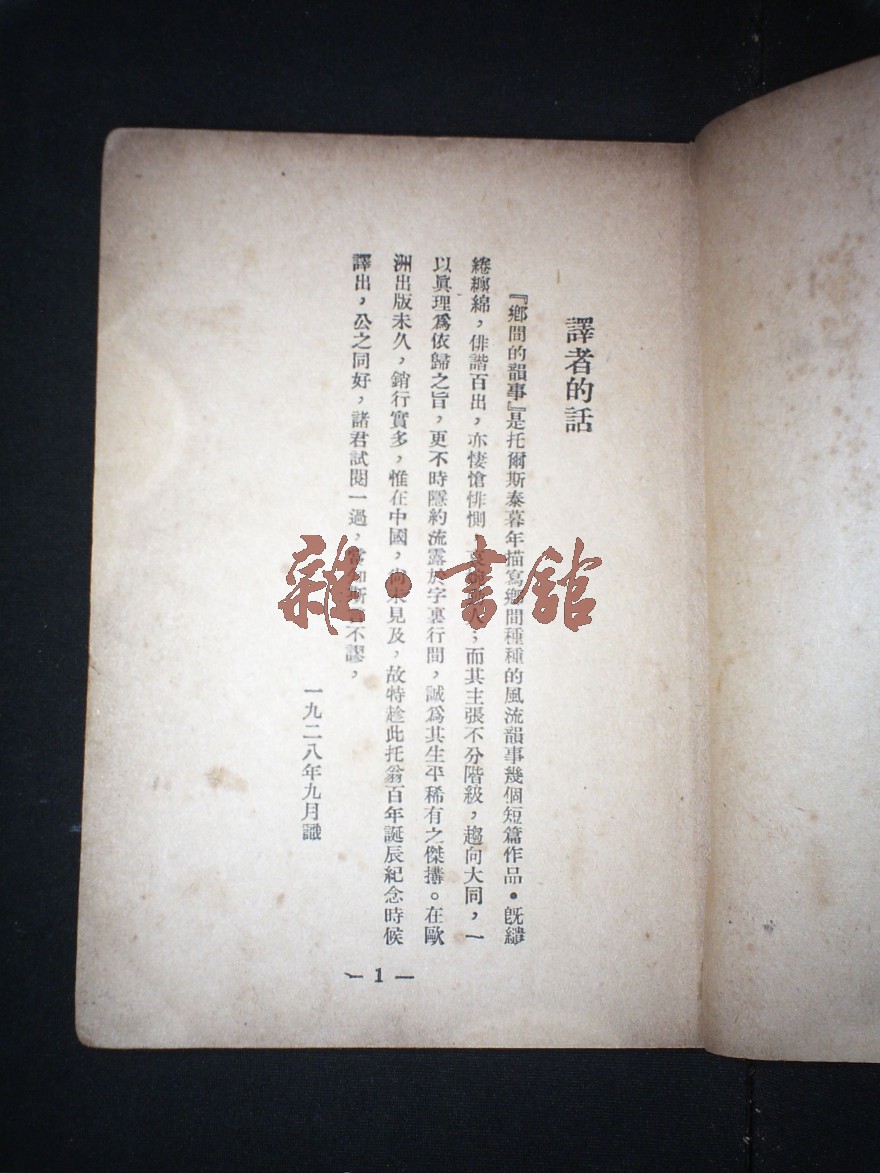 譯者的話
『鄉間的韻事』是托爾斯泰暮年描寫鄉間種種的風流韻事幾個短篇作品。既繾
綣纏綿，俳諧百出，亦悽愴悱惻，哀；而其主張不分階級，趨向大同，一
以眞理爲依歸之旨，更不時隱約流露於字裏行間，誠爲其生平稀有之傑搆。在歐
洲出版未久，銷行實多，惟在中國，尚未見及，故特趁此托翁百年誕辰紀念時候
譯出，公之同好，諸君試閱一過，當知斯言不謬，
一九二八年九月識
— 1 —
雜·書館